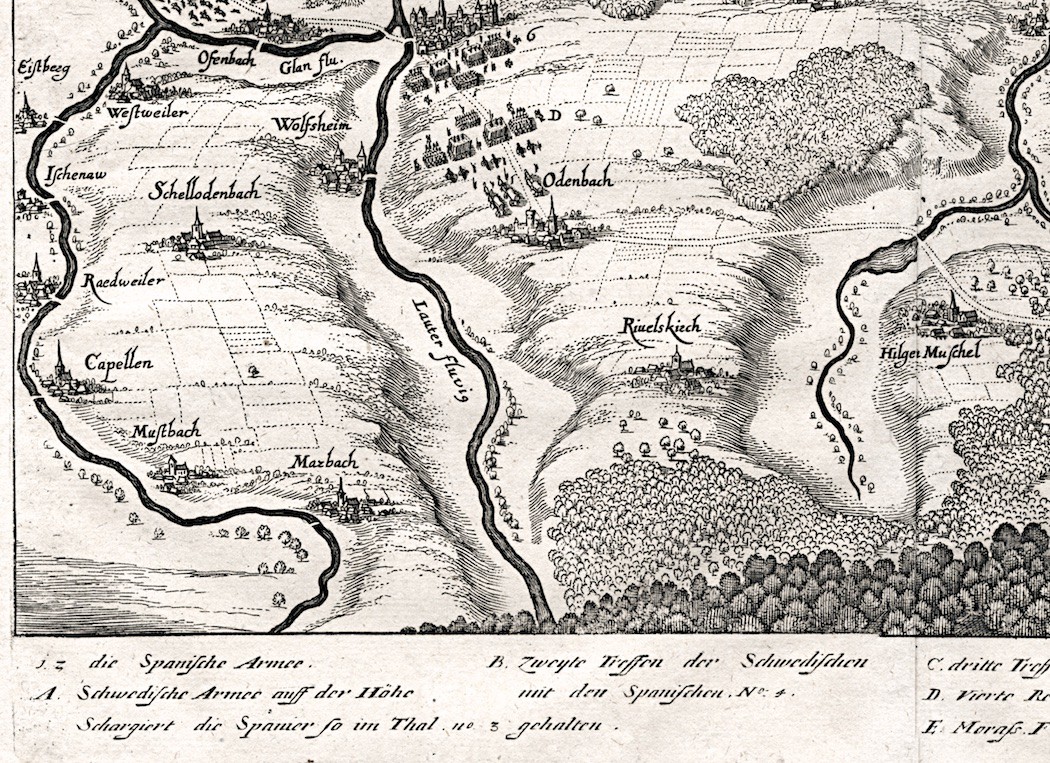 6
Ofenbach
Glan flu.
Eistberg
Westweiler
D
Wolfsheim
Ischenaw
Schellodenbach
Odenbach
Raedweiler
Lauter fluvig
Riuelskiech
Capellen
Hilget Muschel
Mustbach
Marbach
1. 2 die Spanische Armee.
A. Schwedische Armee auff der Höhe
Schargiert die Spanier so im Thal. no 3 gehalten.
B. Zweyte Treffen der Schwedischen
mit den Spanischen. No. 4.
C. dritte Treff
D. Vierte Re
E. Morass. F